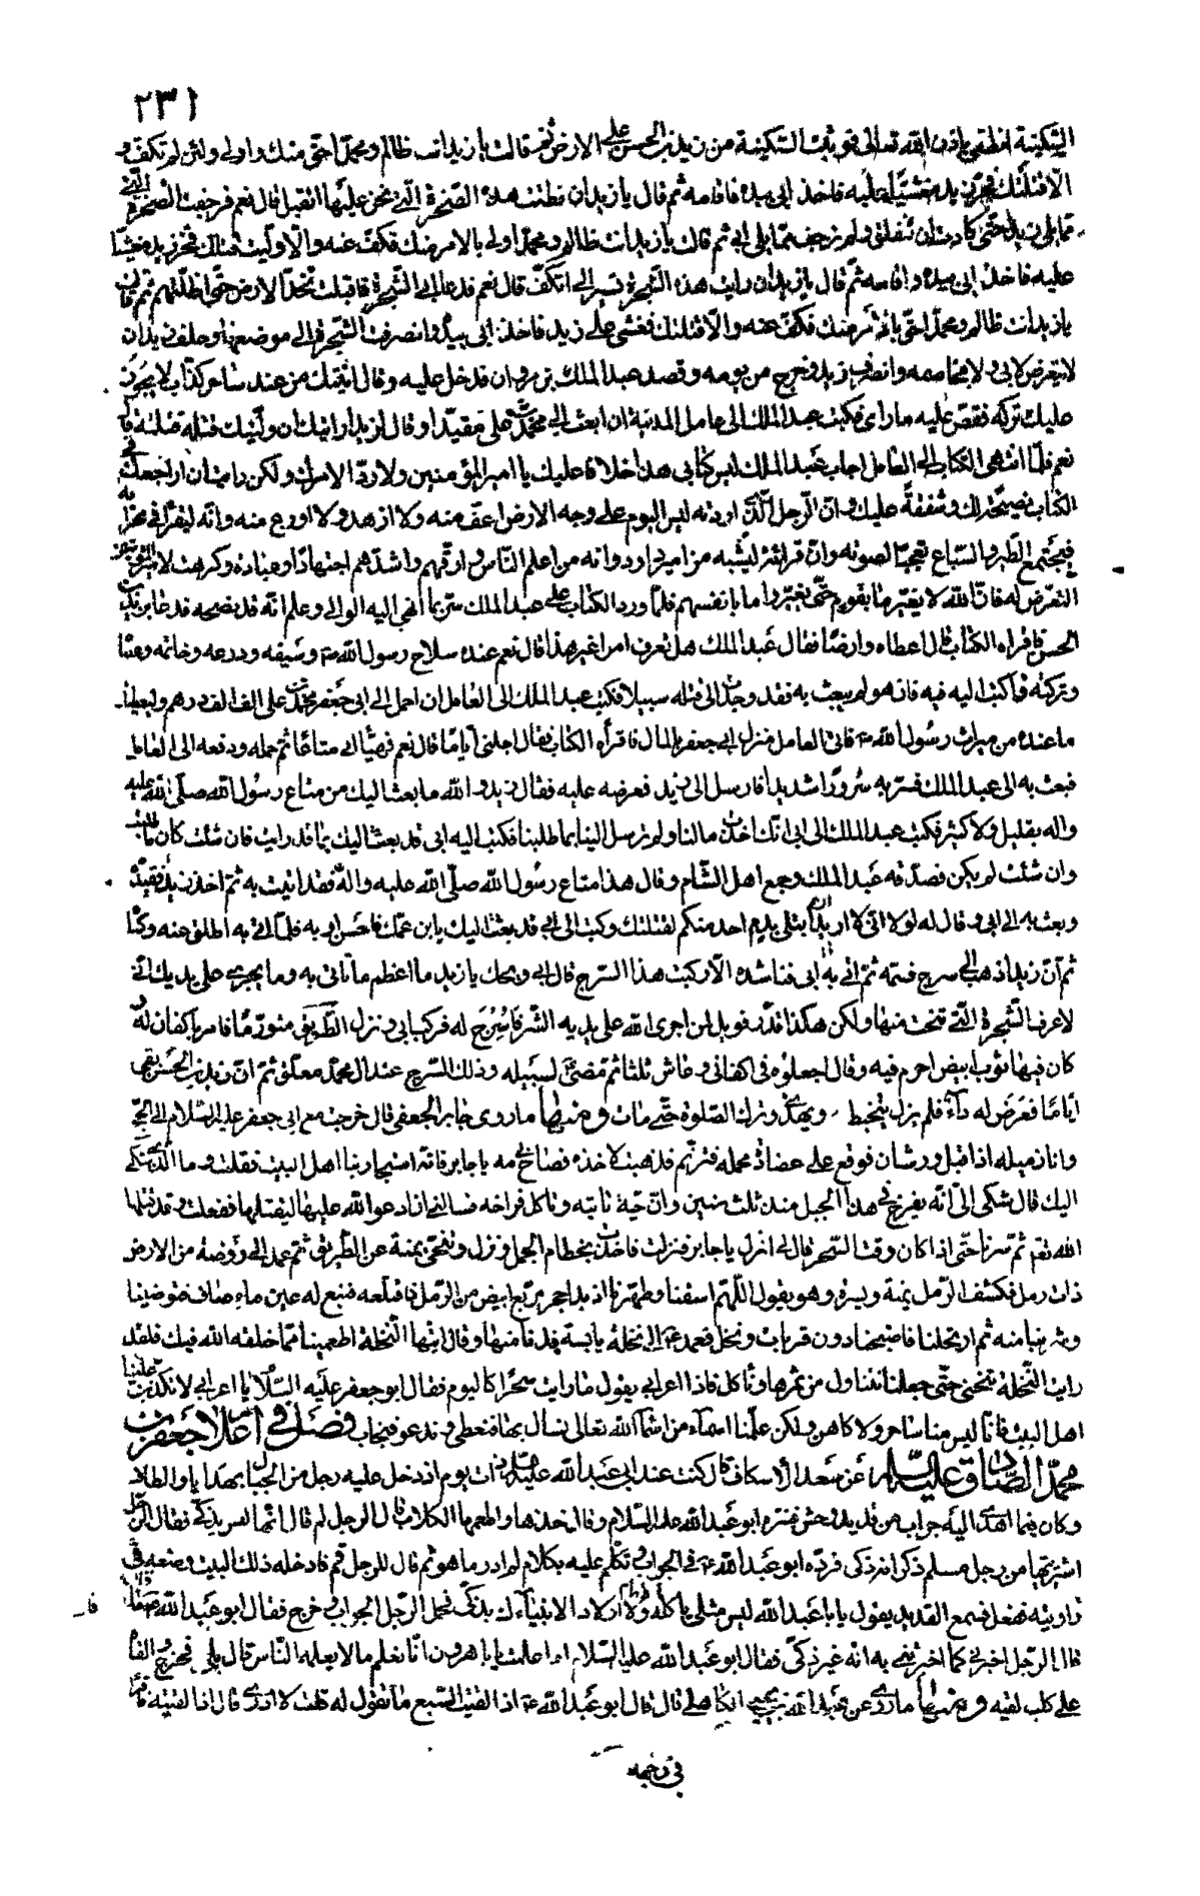 ٢٣١
السكينة انطقي باذن الله تعالى فوثبت السكينة من زيد بن الحسن على الارض ثم قالت يا زيد انت ظالم ومحمد احق منك واولى ولئن لم تكف
الاقتلنك فخر زيد مغشيا عليه فاخذ ابي بيده فاقامه ثم قال يا زيد ان نطقت هذه الصخرة التي نحن عليها اتقبل قال نعم فرجفت الصخرة التي
مما يلي زيد حتى كادت ان تفلق ولم ترجف مما يلي ابي ثم قالت يا زيد انت ظالم ومحمد اولى بالامر منك فكف عنه والا وليت قتلك فخر زيد مغشيا
عليه فاخذ ابي بيده واقامه ثم قال يا زيد ان رايت هذه الشجرة تسير الى اتكف قال نعم فدعا ابي الشجرة فاقبلت تخد الارض حتى اظلتهم ثم قالت
يا زيد انت ظالم ومحمد احق بالامر منك فكف عنه والا قتلتك فغشي على زيد فاخذ ابي بيده وانصرفت الشجرة الى موضعها وحلف زيد ان
لا يتعرض لابي ولا يخاصمه وانصرف زيد وخرج من يومه وقصد عبد الملك بن مروان فدخل عليه وقال اتيتك من عند ساحر كذاب لا يحل
عليك تركه فقص عليه ما راى فكتب عبد الملك الى عامل المدينة ان ابعث الى محمد بن علي مقيدا وقال لزيد ارايتك ان وليتك قتله قتلته قال
نعم فلما انتهى الكتاب الى العامل اجاب عبد الملك ليس كتابي هذا خلافا عليك يا امير المؤمنين ولا رد الامرك ولكن رايت ان اراجعك في
الكتاب نصيحة لك وشفقة عليك وان الرجل الذي اردته ليس اليوم على وجه الارض اعف منه ولا ازهد ولا اورع منه وانه ليقرا في محرابه
فيجتمع الطير والسباع تعجبا لصوته وان قرائته ليشبه مزامير داود وانه من اعلم الناس وارقهم واشدهم اجتهادا وعبادة وكرهت لامير المؤمنين
التعرض له فان الله لا يغير ما بقوم حتى يغيروا ما بانفسهم فلما ورد الكتاب على عبد الملك سر بما انهي اليه الوالي وعلم انه قد نصحه فدعا بزيد بن
الحسن فاقراه الكتاب قال اعطاه وارضاه فقال عبد الملك هل تعرف امرا غير هذا قال نعم عنده سلاح رسول الله ص وسيفه ودرعه وخاتمه وعصاه
وتركته فاكتب اليه فيه فان هو لم يبعث به فقد وجدت الى قتله سبيلا فكتب عبد الملك الى العامل ان احمل الى ابي جعفر محمد بن علي الف الف درهم وليعطك
ما عنده من ميراث رسول الله ص فاتى العامل منزل ابي جعفر بالمال فاقرأه الكتاب فقال اجلني اياما قال نعم فهيأ ابي متاعا ثم حمله ودفعه الى العامل
فبعث به الى عبد الملك فسر به سرورا شديدا فارسل الى زيد فعرضه عليه فقال زيد والله ما بعث اليك من متاع رسول الله صلى الله عليه
واله بقليل ولا كثير فكتب عبد الملك الى ابي انك اخذت مالنا ولم ترسل الينا بما طلبنا فكتب اليه ابي قد بعثت اليك بما قد رايت فان شئت كان ما طلبت
وان شئت لم يكن فصدقه عبد الملك وجمع اهل الشام وقال هذا متاع رسول الله صلى الله عليه واله فقد اتيت به ثم اخذ زيدا وقيده
وبعث به الى ابي وقال له لولا اني لا اريد ان ابتلي بدم احد منكم لقتلتك وكتب الى ابي قد بعثت اليك بابن عمك فاحسن ادبه فلما اتي به اطلق عنه وكساه
ثم ان زيدا ذهب الى سرج فسمه ثم اتى به الى ابي فناشده الا ركبت هذا السرج قال ابي ويحك يا زيد ما اعظم ما تاتي به وما يجري على يديك اني
لاعرف الشجرة التي نحت منها ولكن هكذا قدر فويل لمن اجرى الله على يديه الشر فاسرج له فركب ابي ونزل الطريق متورما فامر باكفان له
كان فيها ثوب ابيض احرم فيه وقال اجعلوه في اكفاني وعاش ثلثا ثم مضى لسبيله وذلك السرج عند ال محمد معلق ثم ان زيد بن الحسن بقي
اياما فعرض له داء فلم يزل يتخبط ويهذي وترك الصلوة حتى مات ومنها ما روى جابر الجعفي قال خرجت مع ابي جعفر عليه السلام الى الحج
وانا زميله اذ اقبل ورشان فوقع على عضادة محمله فترنم فذهبت لاخذه فصاح بي مه يا جابر فانه استجار بنا اهل البيت فقلت وما الذي شكى
اليك قال شكى الي انه يفرخ في هذا الجبل منذ ثلث سنين وان حية تاتيه وتاكل فراخه فسالني ان ادعو الله عليها ليقتلها ففعلت وقد قتلها
الله نعم ثم سرنا حتى اذا كان وقت السحر قال لي انزل يا جابر فنزلت فاخذت بخطام الجمل ونزل وتنحى يمنة عن الطريق ثم عمد الى روضة من الارض
ذات رمل فكشف الرمل يمنة ويسرة وهو يقول اللهم اسقنا وطهرنا اذ بدا حجر مربع ابيض من الرمل فاقتلعه فنبع له عين ماء صاف فتوضينا
وشربنا منه ثم ارتحلنا فاصبحنا دون قريات ونخل فعمد ع الى نخلة يابسة فدنا منها وقال ايتها النخلة اطعمينا مما خلقه الله فيك فلقد
رايت النخلة تنحني حتى جعلنا نتناول من ثمرها وناكل فاذا اعرابي يقول ما رايت سحرا كاليوم فقال ابو جعفر عليه السلام يا اعرابي لا تكذبن علينا
اهل البيت فانا ليس منا ساحر ولا كاهن ولكن علمنا اسماء من اسماء الله تعالى نسال بها فنعطى وندعو فنجاب فصل في اعلام جعفر بن
محمد الصادق عليه السلام عن سعد الاسكاف قال كنت عند ابي عبد الله عليه السلام ذات يوم اذ دخل عليه رجل من الجبال بهدايا والطاف
وكان فيما اهدى اليه جراب من قديد وحش فنثره ابو عبد الله عليه السلام وقال خذ هذا واطعمها الكلاب قال الرجل لم قال انها ليس بذكي فقال الرجل
اشتريتها من رجل مسلم ذكر انه ذكي فرده ابو عبد الله ع في الجراب وتكلم عليه بكلام لم ادر ما هو ثم قال للرجل قم فادخله ذلك البيت وضعه في
زاويته ففعل فسمع القديد يقول يا با عبد الله ليس مثلي ياكله الامام ولا اولاد الانبياء لست بذكي فحمل الرجل الجراب وخرج فقال ابو عبد الله ع
قال الرجل اخبرني كما اخبرتني به انه غير ذكي فقال ابو عبد الله عليه السلام اما علمت يا با هرون انا نعلم ما لا يعلمه الناس قال بلى فخرج والقاه
على كلب لقيه ومنها ما روي عن عبد الله بن يحيى الكاهلي قال قال ابو عبد الله ع اذا لقيت السبع ما تقول له قلت لا ادري قال اذا لقيته فاقرا
في وجهه